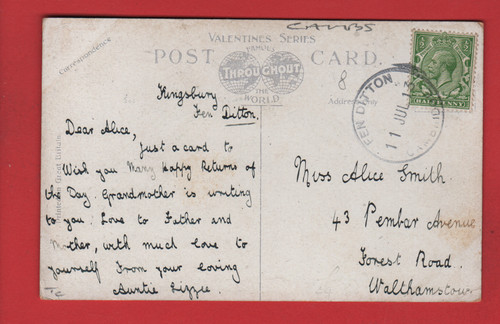 CAMBS
VALENTINES SERIES
POST CARD.
FAMOUS
THROUGHOUT
THE
WORLD
8
Correspondence
Address Only
HALF PENNY
FEN DITTON
11 JUL
Kingsbury
Fen Ditton.
Dear Alice,
Just a card to
Wish you Many Happy Returns of
the Day. Grandmother is writing
to you. Love to Father and
Mother, with much love to
yourself From your loving
Auntie Lizzie.
Miss Alice Smith.
43 Pembar Avenue
Forest Road.
Walthamstow